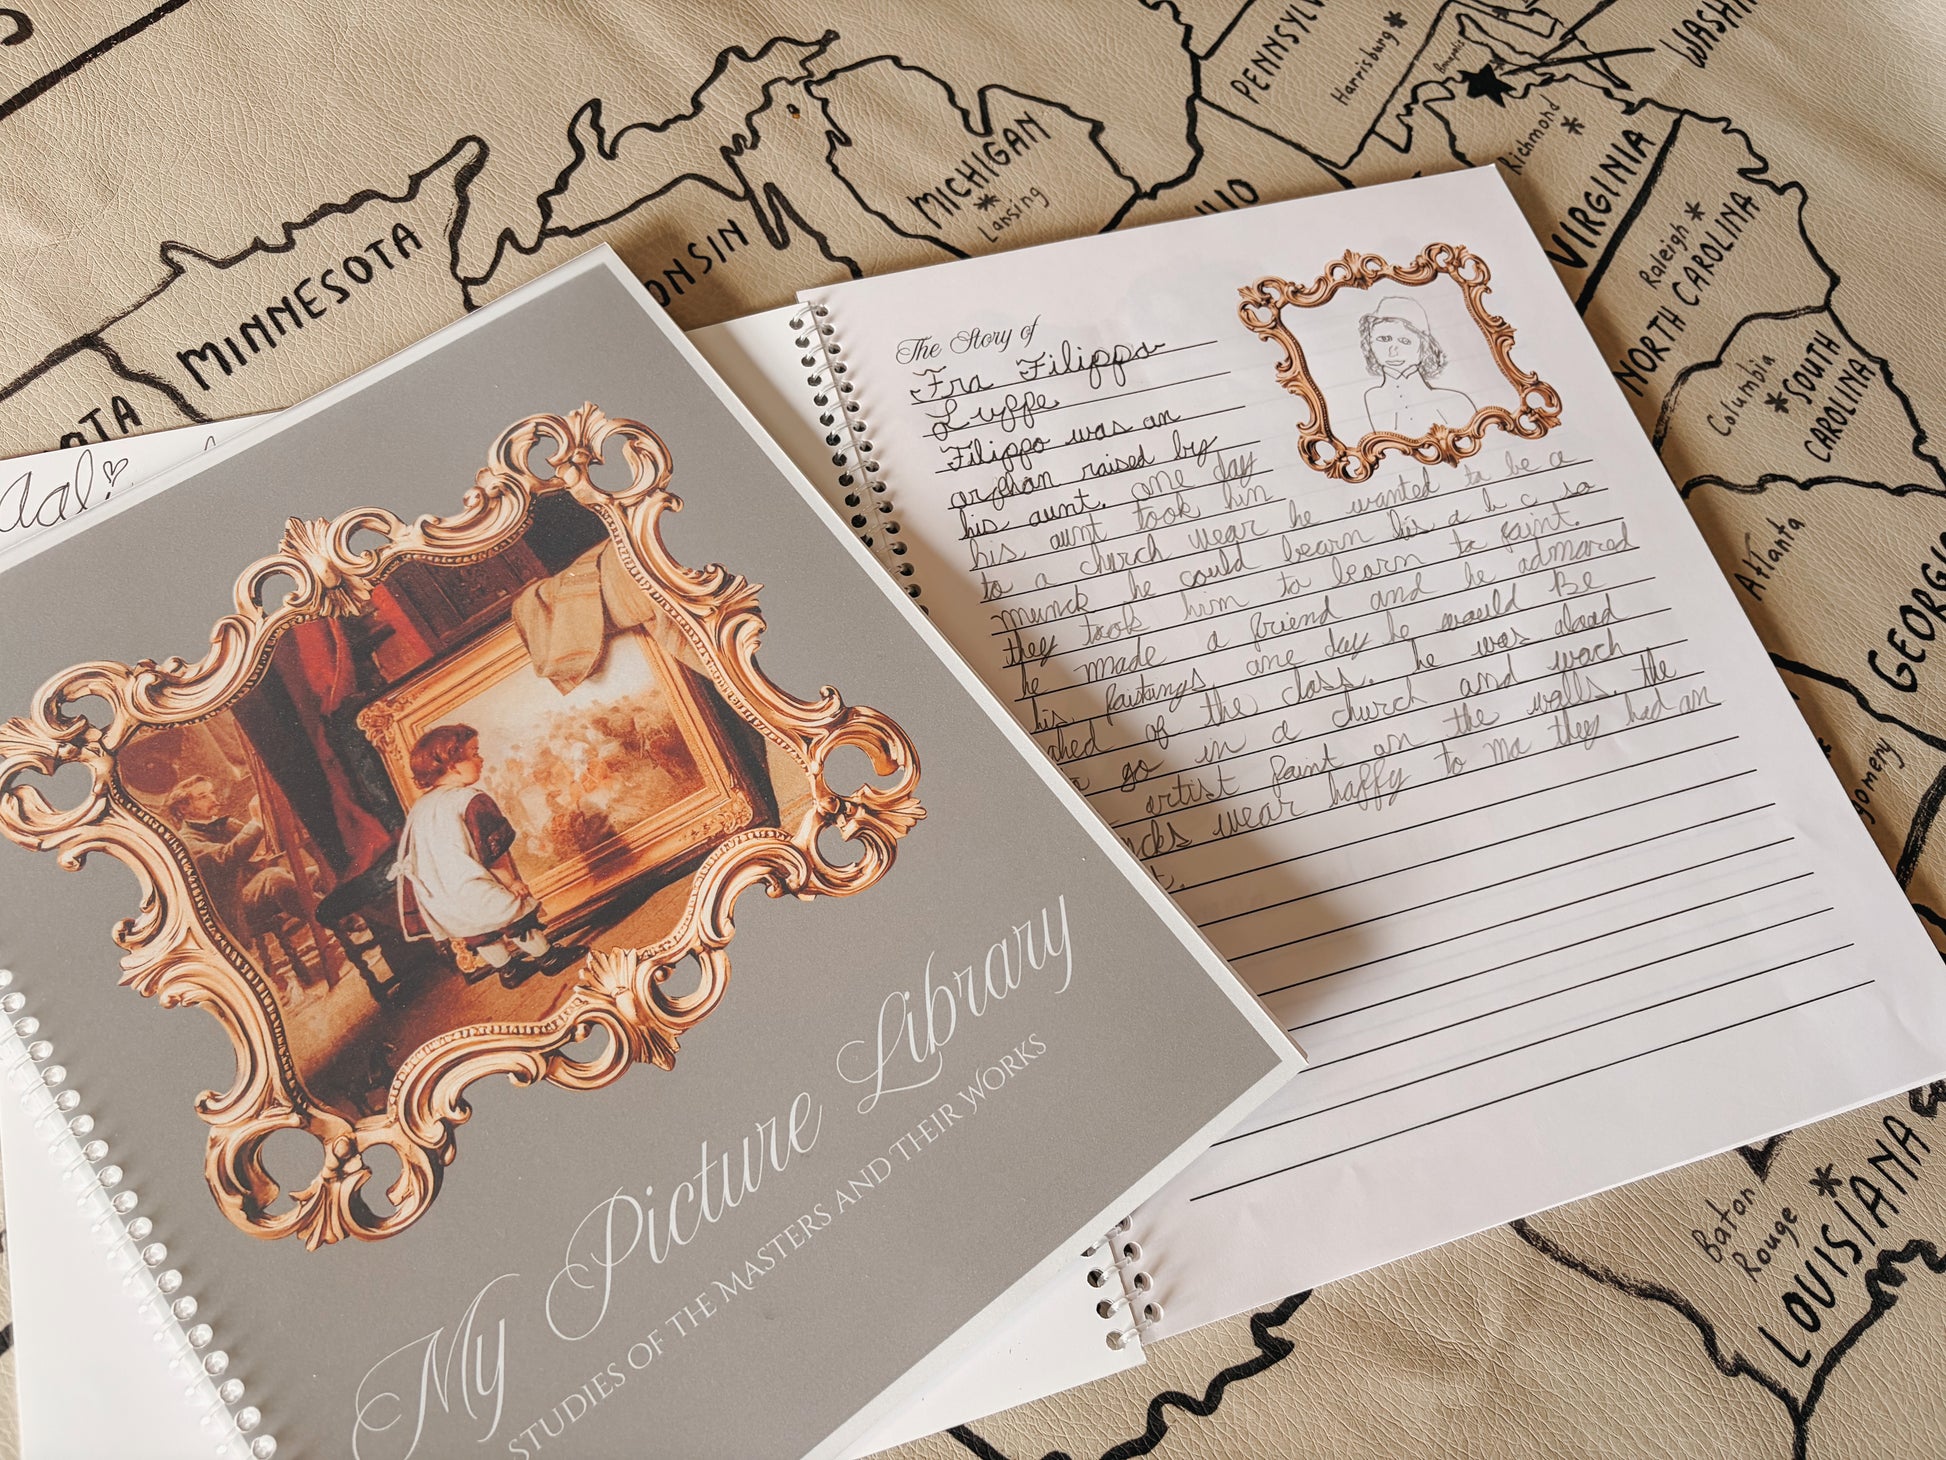 PENNSYLV
WASHIN
Harrisburg
Annapolis
Richmond
VIRGINIA
MICHIGAN
Lansing
HIO
MINNESOTA
ONSIN
OTA
Raleigh
NORTH CAROLINA
Columbia
SOUTH
CAROLINA
Atlanta
GEORGIA
gomery
Baton
Rouge
LOUISIANA
aal!
My Picture Library
STUDIES OF THE MASTERS AND THEIR WORKS
The Story of
Fra Filippo
Lyppe
Filippo was an
orphan raised by
his aunt. one day
his aunt took him
to a church wear he wanted to be a
munck he could learn his a b c so
they took him to learn to paint.
he made a friend and he admared
his paintings one day he would Be
ahed of the class. he was alood
go in a church and wach
artist paint on the walls. the
ncks wear happy to ma they had an
t.